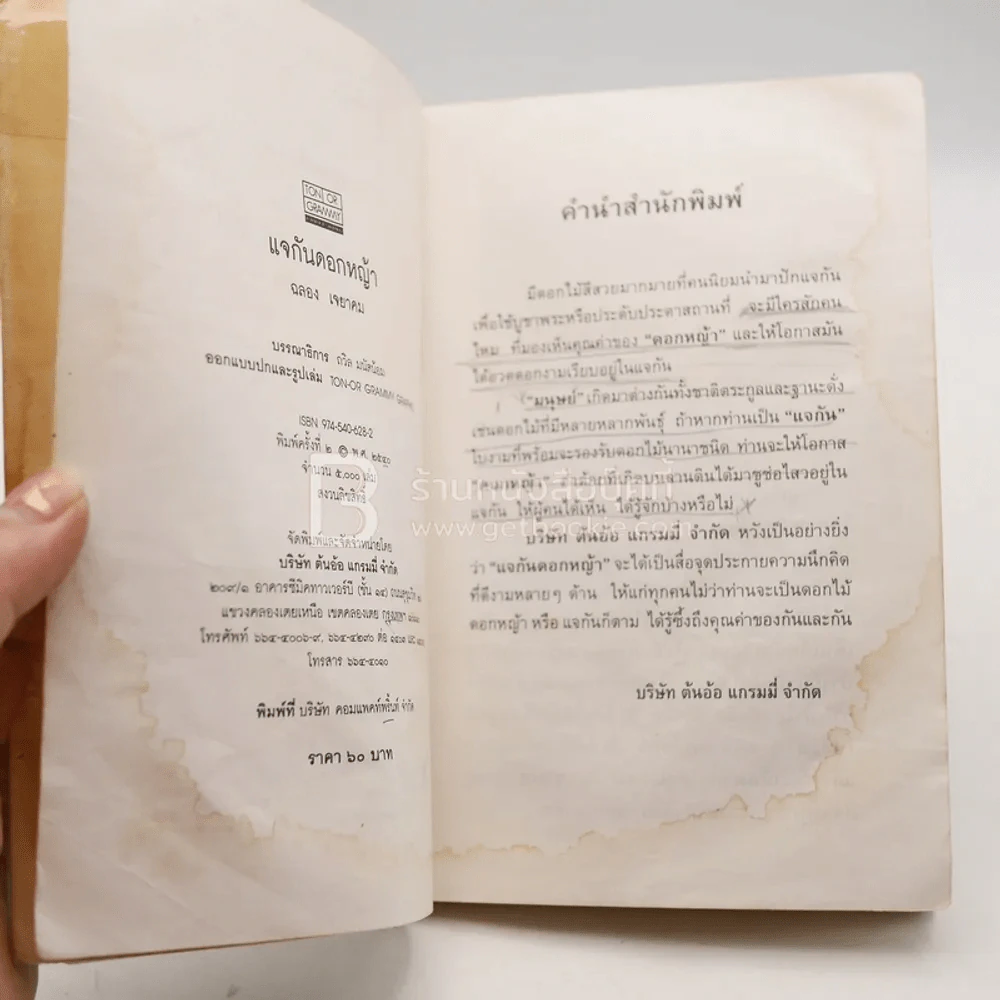 TON OR
GRAMMY
แจกันดอกหญ้า
ฉลอง เจยาคม
บรรณาธิการ ถวิล มนัสน้อม
ออกแบบปกและรูปเล่ม TON-OR GRAMMY GRAPHIC
ISBN 974-540-628-2
พิมพ์ครั้งที่ ๒ © พ.ศ. ๒๕๔๐
จำนวน ๕,๐๐๐ เล่ม
สงวนลิขสิทธิ์
จัดพิมพ์และจัดจำหน่ายโดย
บริษัท ต้นอ้อ แกรมมี่ จำกัด
๒๐๙/๑ อาคารซีมิคทาวเวอร์บี (ชั้น ๑๔)
แขวงคลองเตยเหนือ เขตคลองเตย กรุงเทพฯ
โทรศัพท์ ๖๖๔-๔๐๐๖-๙, ๖๖๔-๔๒๙๐ ต่อ
โทรสาร ๖๖๔-๔๐๑๐
พิมพ์ที่ บริษัท คอมแพคท์พริ้นท์ จำกัด
ราคา ๖๐ บาท
คำนำสำนักพิมพ์
มีดอกไม้สีสวยมากมายที่คนนิยมนำมาปักแจกัน
เพื่อใช้บูชาพระหรือประดับประดาสถานที่ จะมีใครสักคน
ไหม ที่มองเห็นคุณค่าของ “ดอกหญ้า” และให้โอกาสมัน
ได้อวดดอกงามเรียบอยู่ในแจกัน
“มนุษย์” เกิดมาต่างกันทั้งชาติตระกูลและฐานะดั่ง
เช่นดอกไม้ที่มีหลายหลากพันธุ์ ถ้าหากท่านเป็น “แจกัน”
ใบงามที่พร้อมจะรองรับดอกไม้นานาชนิด ท่านจะให้โอกาส
ดอกหญ้า ที่เกิดบนลานดินได้มาชูช่อไสวอยู่ใน
แจกัน ให้ผู้คนได้เห็น ได้รู้จักบ้างหรือไม่
บริษัท ต้นอ้อ แกรมมี่ จำกัด หวังเป็นอย่างยิ่ง
ว่า “แจกันดอกหญ้า” จะได้เป็นสื่อจุดประกายความนึกคิด
ที่ดีงามหลายๆ ด้าน ให้แก่ทุกคนไม่ว่าท่านจะเป็นดอกไม้
ดอกหญ้า หรือ แจกันก็ตาม ได้รู้ซึ้งถึงคุณค่าของกันและกัน
บริษัท ต้นอ้อ แกรมมี่ จำกัด
B ร้านหนังสือบุ๊คกี้
www.getbookie.com